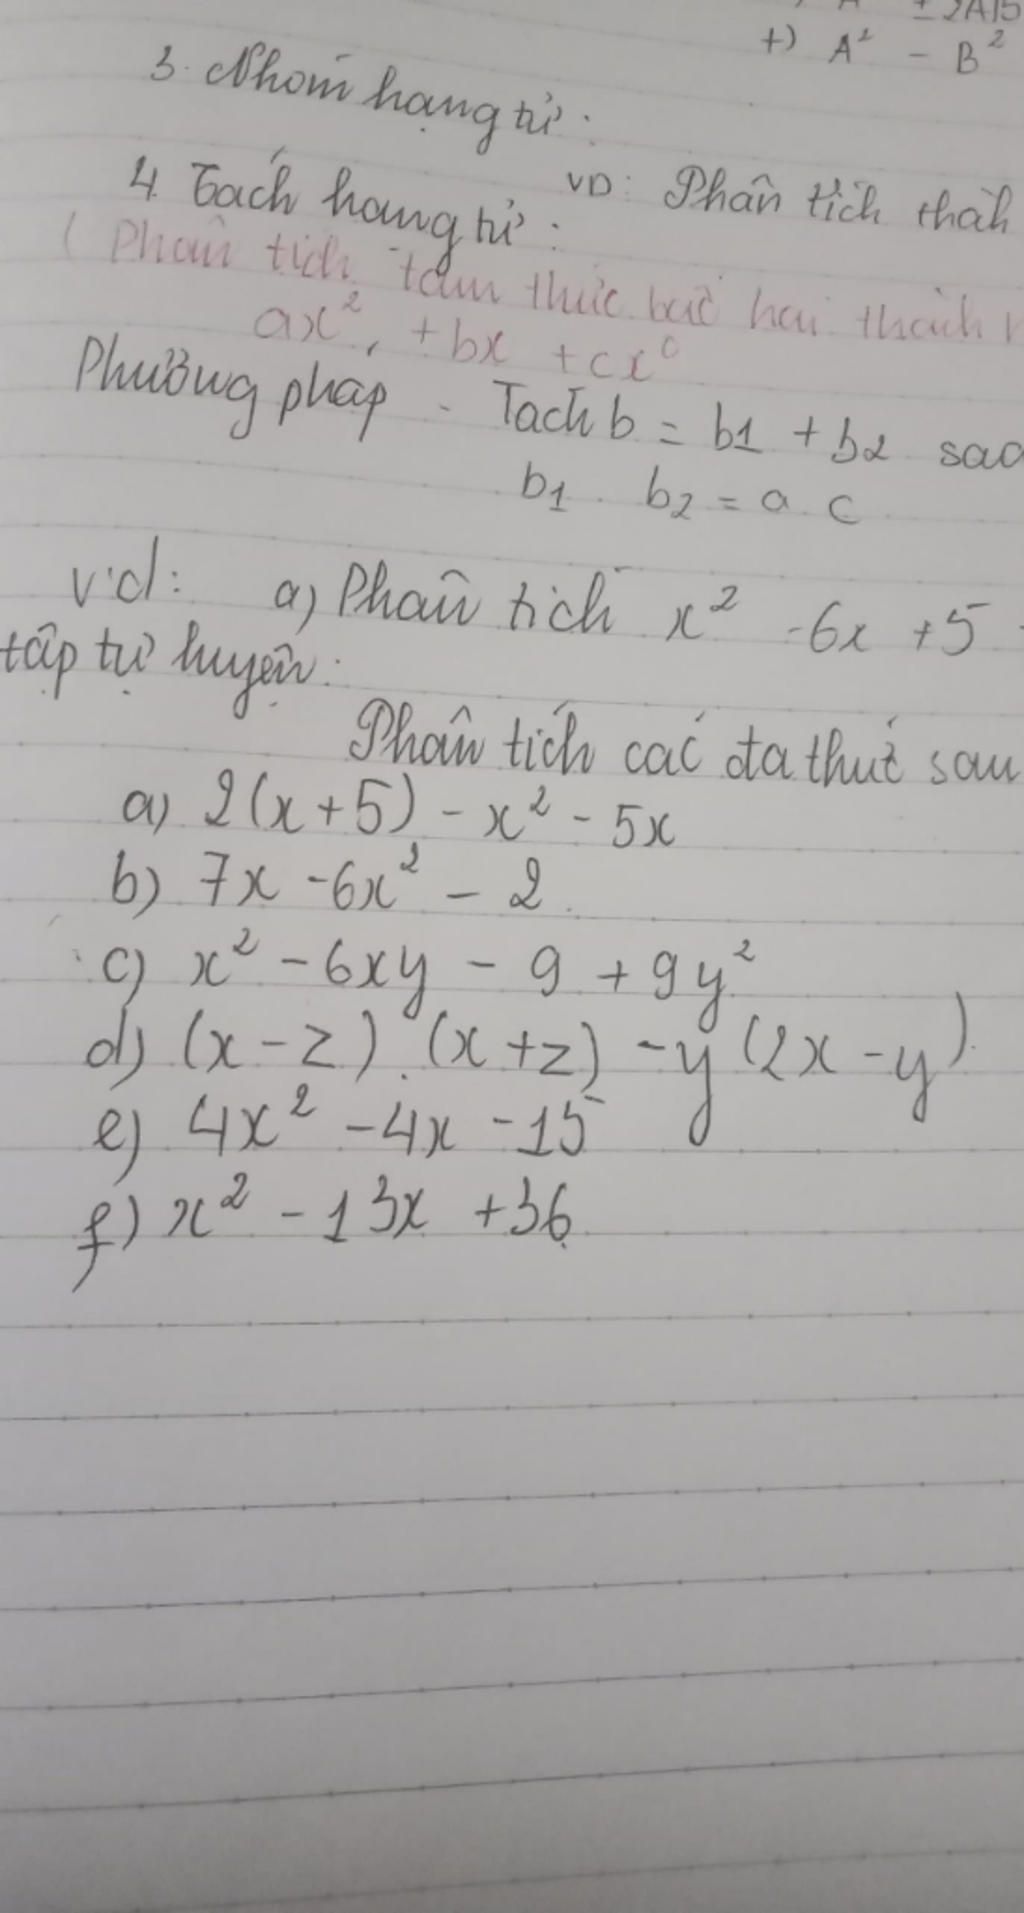 ± 2AB
+) A² - B²
3. Nhóm hạng tử :
4. Tách hạng tử :
VD: Phân tích thàh
( Phân tích tam thức bậc hai thành
ax² + bx + cx⁰
Phương pháp - Tách b = b1 + b2 sao
b1 . b2 = a . c
vd: a) Phân tích x² - 6x + 5
tập tự luyện :
Phân tích các đa thức sau
a) 2(x+5) - x² - 5x
b) 7x - 6x² - 2
c) x² - 6xy - 9 + 9y²
d) (x - z) (x + z) - y (2x - y)
e) 4x² - 4x - 15
f) x² - 13x + 36